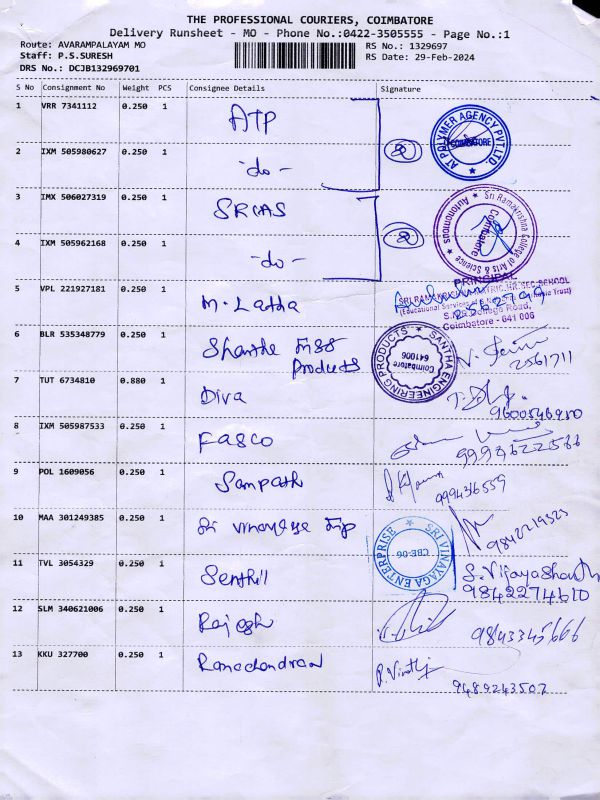 THE PROFESSIONAL COURIERS, COIMBATORE
Delivery Runsheet - MO - Phone No.:0422-3505555 - Page No.:1
Route: AVARAMPALAYAM MO
RS No.: 1329697
Staff: P.S.SURESH
RS Date: 29-Feb-2024
DRS No.: DCJB132969701
S No Consignment No Weight PCS Consignee Details Signature
1 VRR 7341112 0.250 1 ATP
AT POLYMER AGENCY PVT.LTD. COIMBATORE
2 IXM 505980627 0.250 1 -do- 2
3 IMX 506027319 0.250 1 SRCAS
Sri Ramakrishna College of Arts & Science Autonomous Coimbatore
4 IXM 505962168 0.250 1 -do- 2
PRINCIPAL
5 VPL 221927181 0.250 1 M. Latha
MATRIC.HR.SEC.SCHOOL
Coimbatore - 641 006
6 BLR 535348779 0.250 1 Shantha Engg Products
SANTHA ENGINEERING PRODUCTS Coimbatore 641006
2561711
7 TUT 6734810 0.880 1 Diva
8 IXM 505987533 0.250 1 FASCO
9 POL 1609056 0.250 1 Sampath
9994316559
10 MAA 301249385 0.250 1 Sri Vinayaga
SRI VINAYAGA ENTERPRISE CBE-06
11 TVL 3054329 0.250 1 Senthil
S. Vijayashanth
9842274610
12 SLM 340621006 0.250 1 Rajesh
9843345666
13 KKU 327700 0.250 1 Ramachandran
9489243502